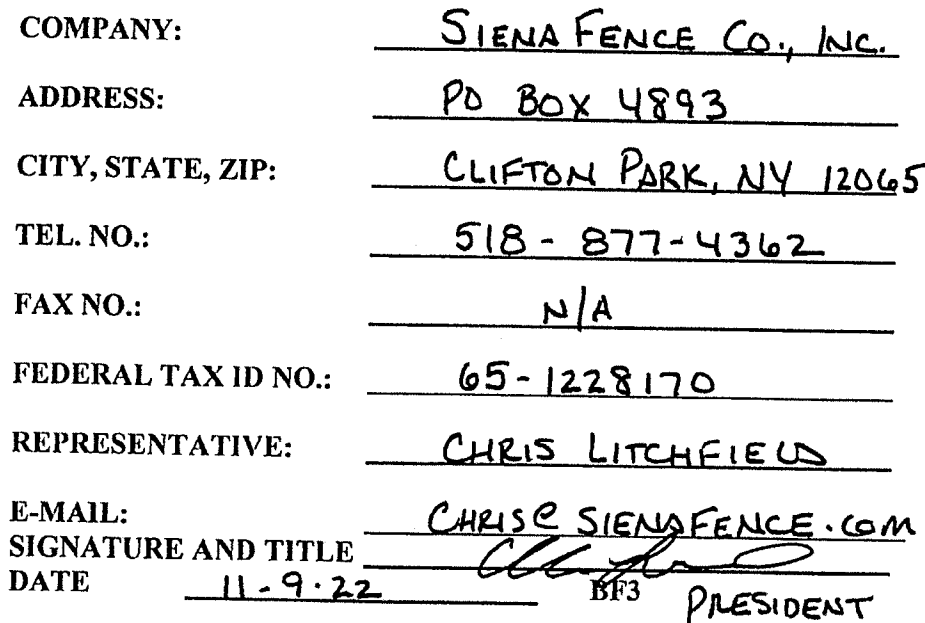 COMPANY: SIENA FENCE CO., INC.
ADDRESS: PO BOX 4893
CITY, STATE, ZIP: CLIFTON PARK, NY 12065
TEL. NO.: 518-877-4362
FAX NO.: N/A
FEDERAL TAX ID NO.: 65-1228170
REPRESENTATIVE: CHRIS LITCHFIELD
E-MAIL: CHRIS@SIENAFENCE.COM
SIGNATURE AND TITLE
DATE 11-9-22 BF3 PRESIDENT